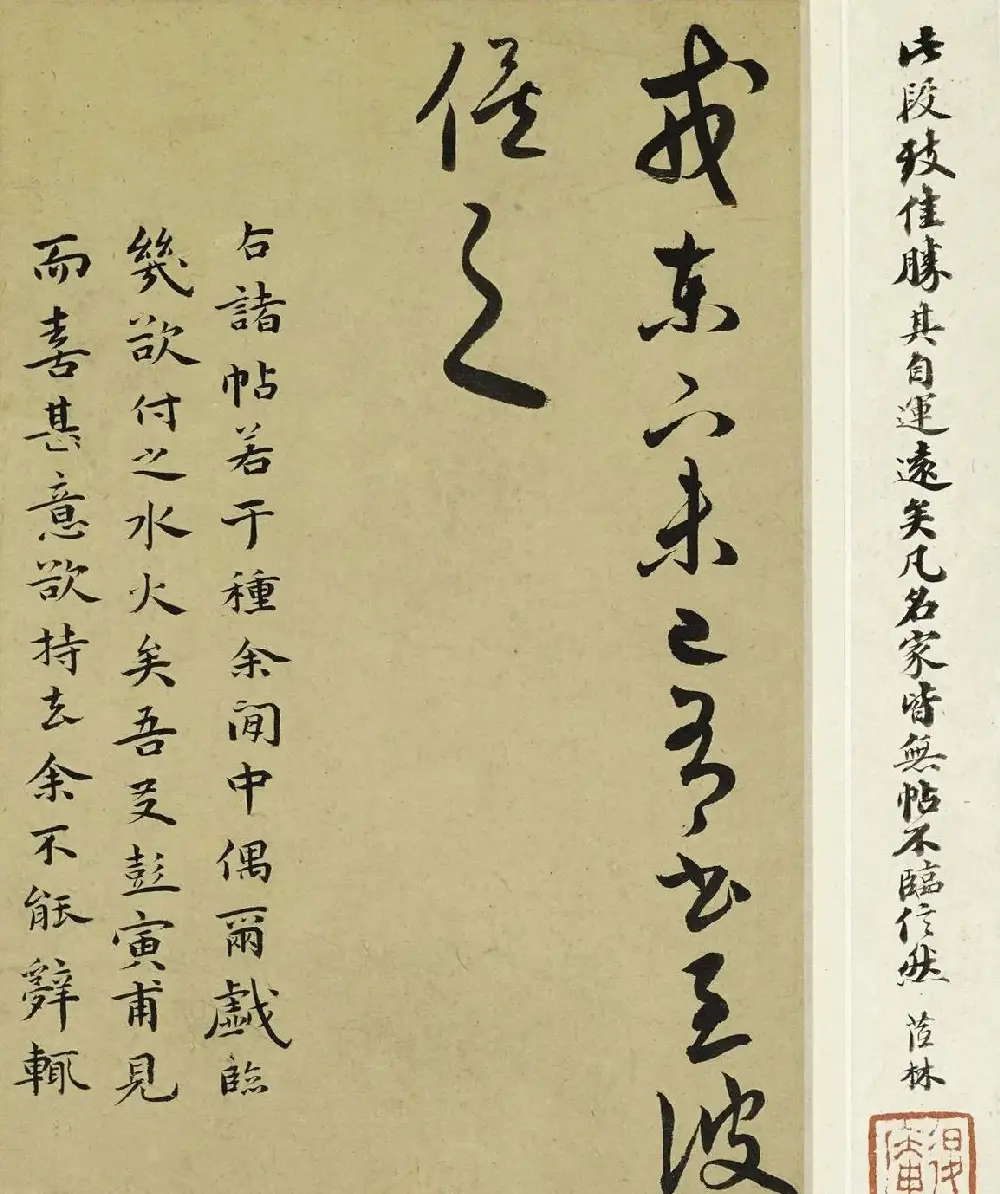 此段致佳勝其自運遠矣凡名家皆無帖不臨信然 茝林
或東下未已有書至彼
候之
右諸帖若干種余閒中偶爾戲臨
幾欲付之水火矣吾友彭寅甫見
而喜甚意欲持去余不能辭輒